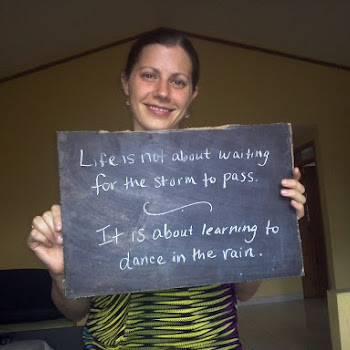 Life is not about waiting
for the storm to pass.
It is about learning to
dance in the rain.